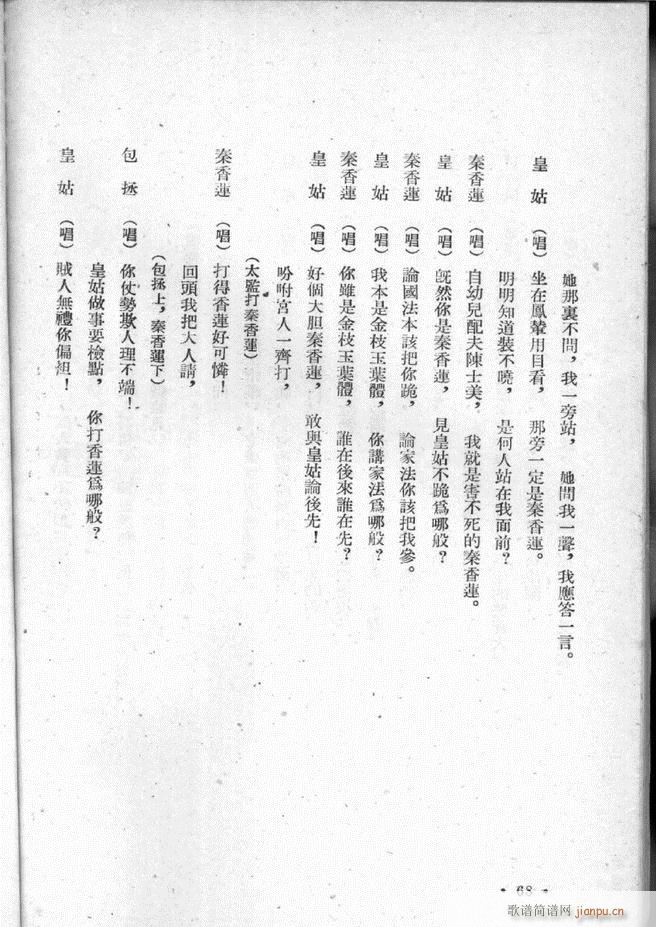 她那裏不問，我一旁站， 她問我一聲，我應答一言。
皇　姑（唱）坐在鳳輦用目看， 那旁一定是秦香蓮。
明明知道裝不曉， 是何人站在我面前？
秦香蓮（唱）自幼兒配夫陳士美， 我就是害不死的秦香蓮。
皇　姑（唱）旣然你是秦香蓮， 見皇姑不跪爲哪般？
秦香蓮（唱）論國法本該把你跪， 論家法你該把我參。
皇　姑（唱）我本是金枝玉葉體， 你講家法爲哪般？
秦香蓮（唱）你雖是金枝玉葉體， 誰在後來誰在先？
皇　姑（唱）好個大胆秦香蓮， 敢與皇姑論後先！
吩咐宮人一齊打，
（太監打秦香蓮）
秦香蓮（唱）打得香蓮好可憐！
回頭我把大人請，
（包拯上，秦香蓮下）
包　拯（唱）你仗勢欺人理不端！
皇姑做事要檢點， 你打香蓮爲哪般？
皇　姑（唱）賊人無禮你偏袒！
• 68 •
歌谱简谱网 jianpu.cn